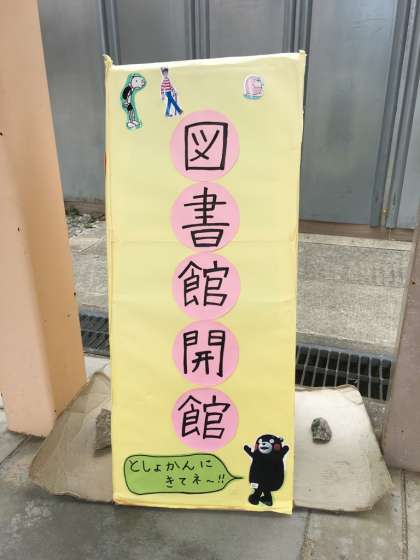 図書館開館
としょかんに
きてネ〜!!